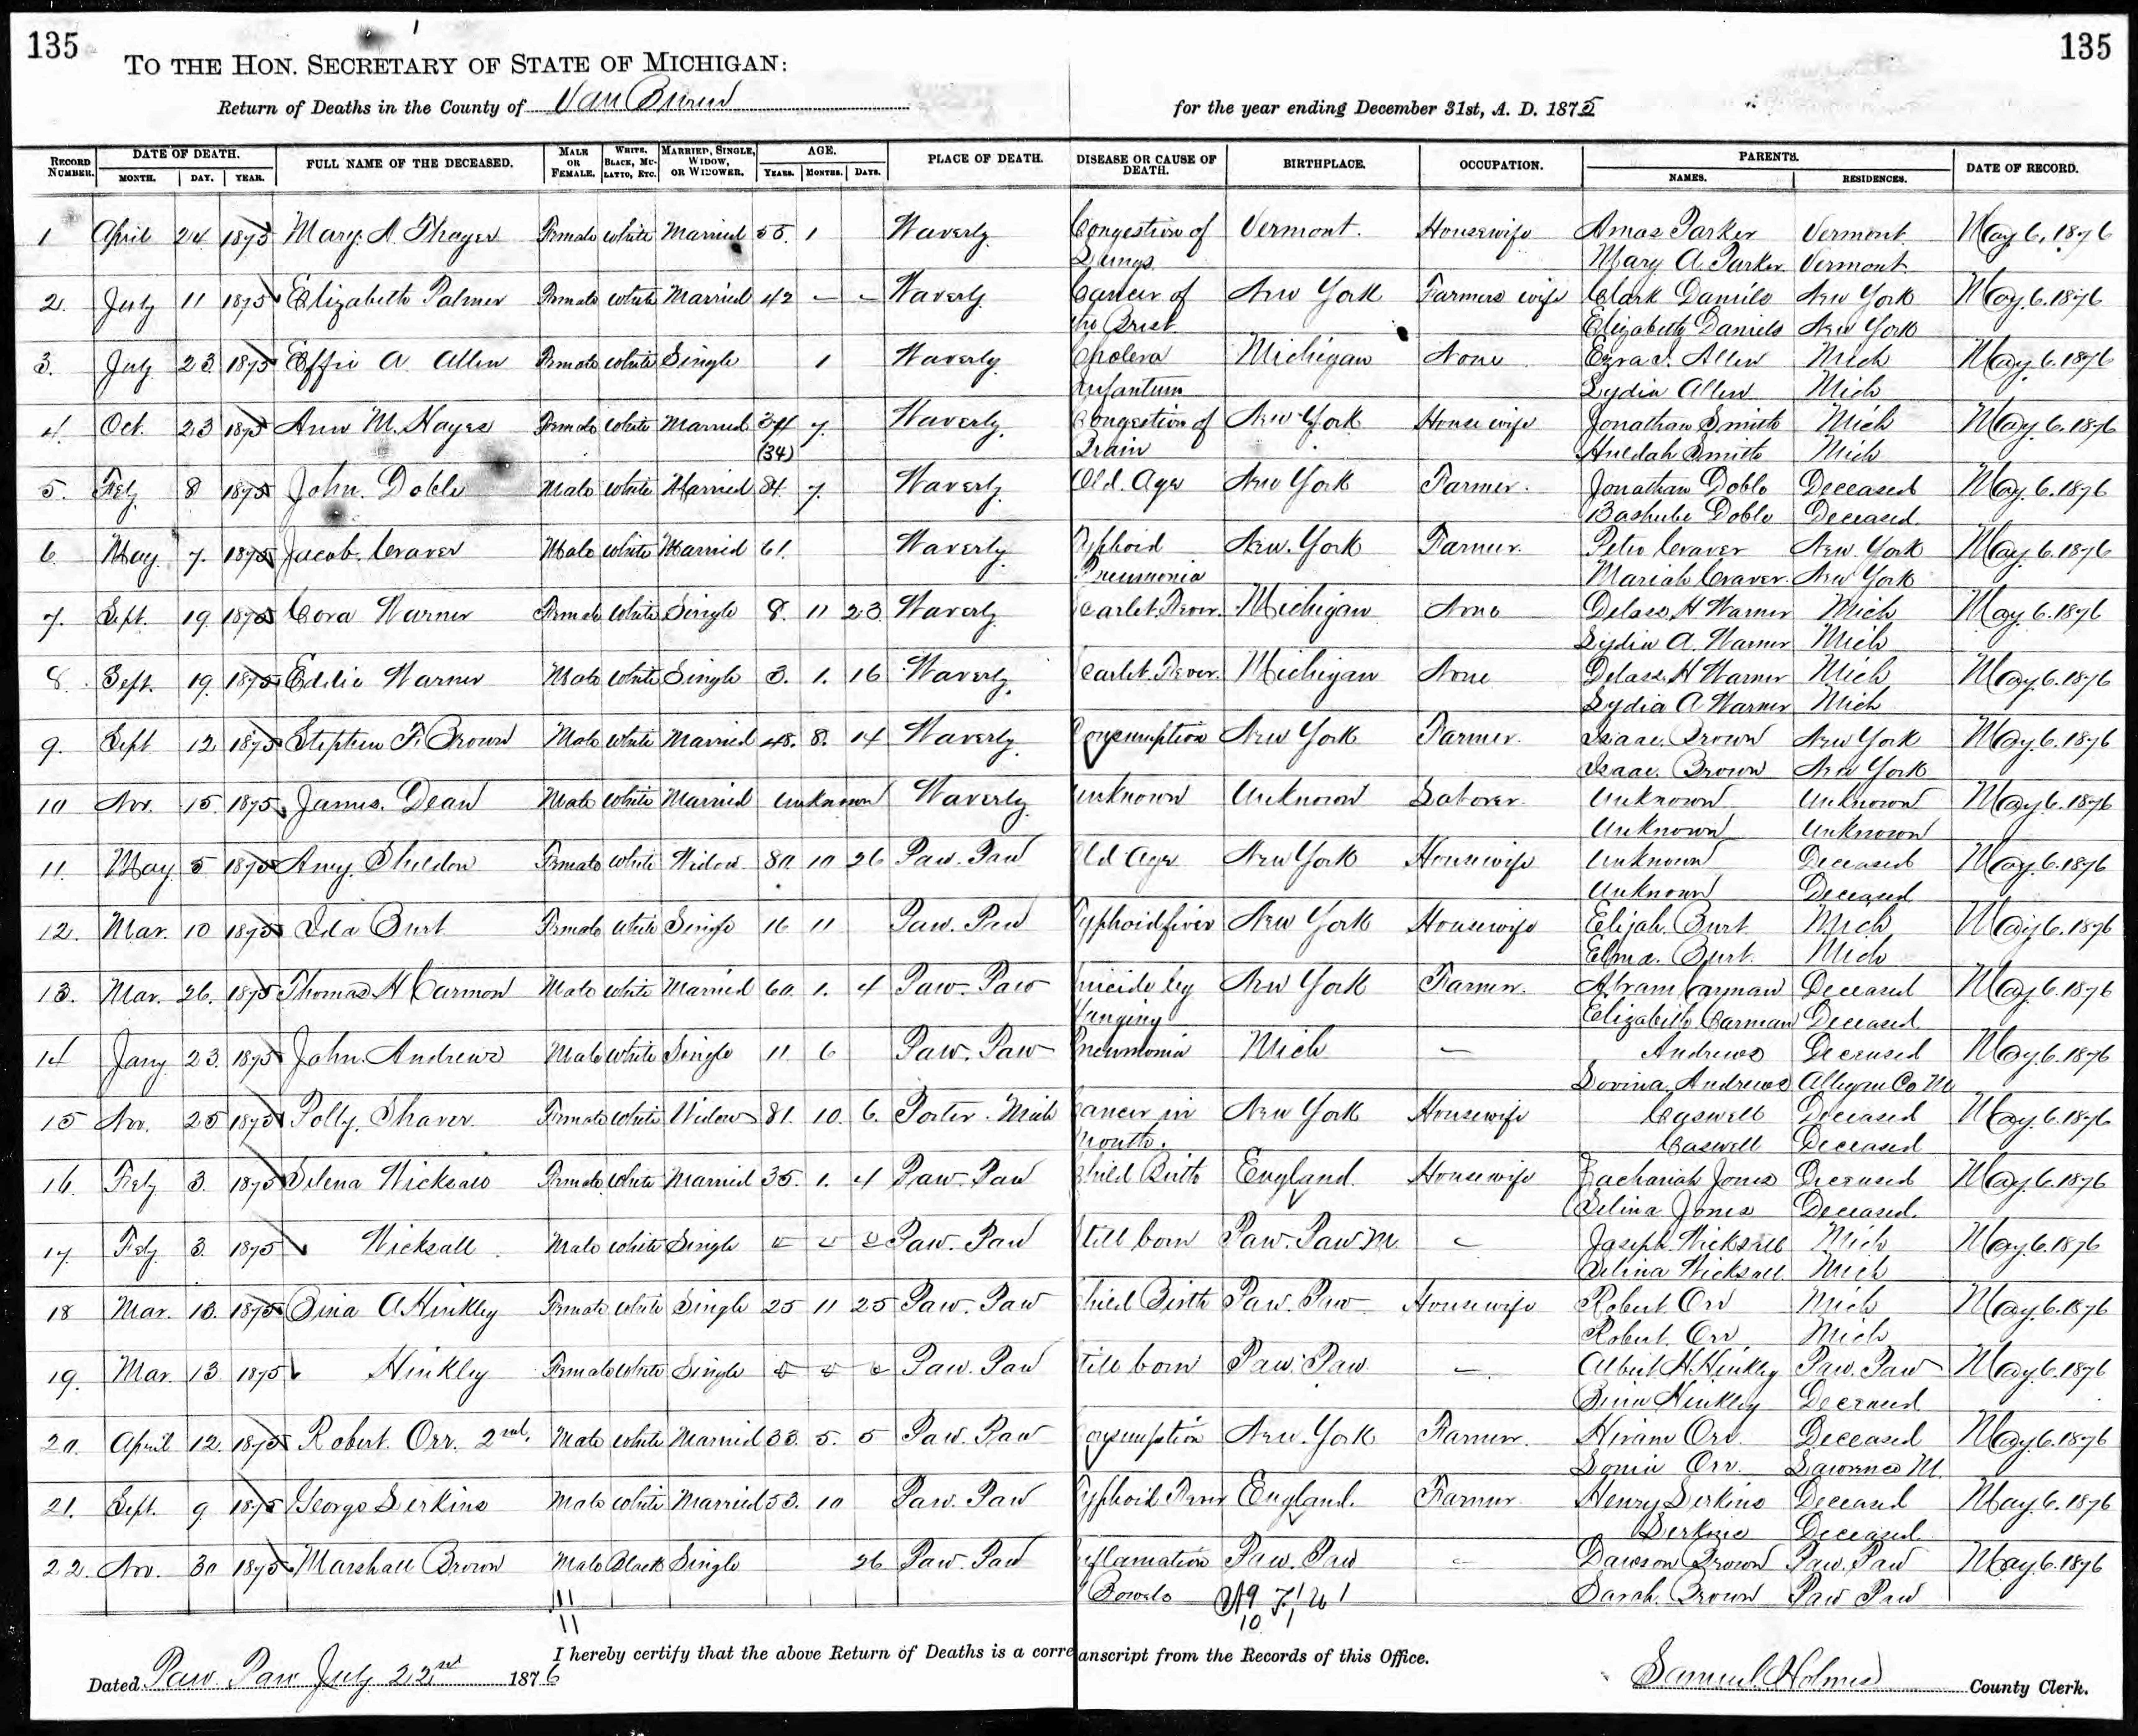 135
135
TO THE HON. SECRETARY OF STATE OF MICHIGAN:
Return of Deaths in the County of Van Buren for the year ending December 31st, A. D. 1875
RECORD NUMBER. DATE OF DEATH. MONTH. DAY. YEAR. FULL NAME OF THE DECEASED. MALE OR FEMALE. WHITE, BLACK, MULATTO, ETC. MARRIED, SINGLE, WIDOW, OR WIDOWER. AGE. YEARS. MONTHS. DAYS. PLACE OF DEATH. DISEASE OR CAUSE OF DEATH. BIRTHPLACE. OCCUPATION. PARENTS. NAMES. RESIDENCES. DATE OF RECORD.
1 April 24 1875 Mary A Thayer Female White Married 55. 1 Waverly Congestion of Vermont. Housewife Amos Parker Vermont May 6, 1876
Lungs Mary A. Parker Vermont
2. July 11 1875 Elizabeth Palmer Female White Married 42 – – Waverly Cancer of New York Farmers wife Clark Daniels New York May 6. 1876
the Brest Elizabeth Daniels New York
3. July 23 1875 Effie A Allen Female White Single 1 Waverly Cholera Michigan None Ezra S. Allen Mich May 6. 1876
Infantum Lydia Allen Mich
4. Oct. 23 1875 Ann M. Hayes Female White Married 34 7. Waverly. Congestion of New York House wife Jonathan Smith Mich May 6. 1876
(34) Brain Huldah Smith Mich
5. Feby 8 1875 John Doble Male White Married 84 7. Waverly. Old Age New York Farmer. Jonathan Doble Deceased May 6. 1876
Doble Deceased
6 May 7. 1875 Jacob Craver Male White Married 61. Waverly Typhoid New York Farmer. Peter Craver New York May 6. 1876
Pneumonia Mariah Craver New York
7. Sept. 19 1875 Cora Warner Female White Single 8. 11 23 Waverly Scarlet Fever. Michigan None Delass H Warner Mich May 6. 1876
Lydia A. Warner Mich
8. Sept. 19. 1875 Eddie Warner Male White Single 3. 1. 16 Waverly. Scarlet Fever. Michigan None Delass H Warner Mich May 6. 1876
Lydia A Warner Mich
9. Sept 12 1875 Stephen F. Brown Male White Married 48. 8. 14 Waverly. Consumption New York Farmer. Isaac Brown New York May 6. 1876
Isaac Brown New York
10 Nov. 15. 1875 James Dean Male White Married Unknown Waverly Unknown Unknown Laborer Unknown Unknown May 6. 1876
Unknown Unknown
11. May 5 1875 Amy Sheldon Female White Widow 80. 10 26 Paw Paw Old Age New York Housewife Unknown Deceased May 6. 1876
Unknown Deceased
12. Mar. 10 1875 Ida Burt Female White Single 16 11 Paw Paw Typhoid fever New York Housewife Elijah Burt Mich May 6. 1876
Elma Burt. Mich
13. Mar. 26. 1875 Thomas H Carmon Male White Married 60. 1. 4 Paw Paw Suicide by New York Farmer. Abram Carman Deceased May 6. 1876
Hanging Elizabeth Carman Deceased
14 Jany 23. 1875 John Andrews Male White Single 11. 6 Paw Paw Pneumonia Mich – Andrews Deceased May 6. 1876
Lovina Andrews Allegan Co M
15 Nov. 25 1875 Polly Shaver Female White Widow 81. 10. 6. Porter Mich Cancer in New York Housewife Caswell Deceased May 6. 1876
Mouth. Caswell Deceased
16. Feby 3. 1875 Selena Female White Married 35. 1. 4 Paw Paw Child Birth England. Housewife Zachariah Jones Deceased May 6. 1876
Selina Jones Deceased.
17. Feby 3. 1875 Wicksall Male White Single 0 0 0 Paw Paw Still born Paw Paw M – Joseph Wicksall Mich May 6. 1876
Selina Wicksall Mich
18 Mar. 13. 1875 A Hinkley Female White Single 25 11 25 Paw Paw Child Birth Paw Paw Housewife Robert Orr Mich May 6. 1876
Robert Orr Mich
19. Mar. 13 1875 Hinkley Female White Single 0 0 0 Paw Paw Still born Paw Paw – Albert H. Hinkley Paw Paw May 6. 1876
Hinkley Deceased
20. April 12. 1875 Robert Orr. 2nd. Male White Married 33. 5. 5 Paw Paw Consumption New York Farmer. Hiram Orr Deceased May 6. 1876
Orr. Lawrence M.
21. Sept. 9 1875 George Male White Married 53. 10 Paw Paw Typhoid Fever England. Farmer Henry Deceased May 6. 1876
Deceased
22. Nov. 30 1875 Marshall Brown Male Black Single 26 Paw Paw Inflamation Paw Paw – Dawson Brown Paw Paw May 6. 1876
Bowels Sarah Brown Paw Paw
11
11
10
I hereby certify that the above Return of Deaths is a corre anscript from the Records of this Office.
Dated Paw Paw July 22nd 1876 Samuel Holmes County Clerk.